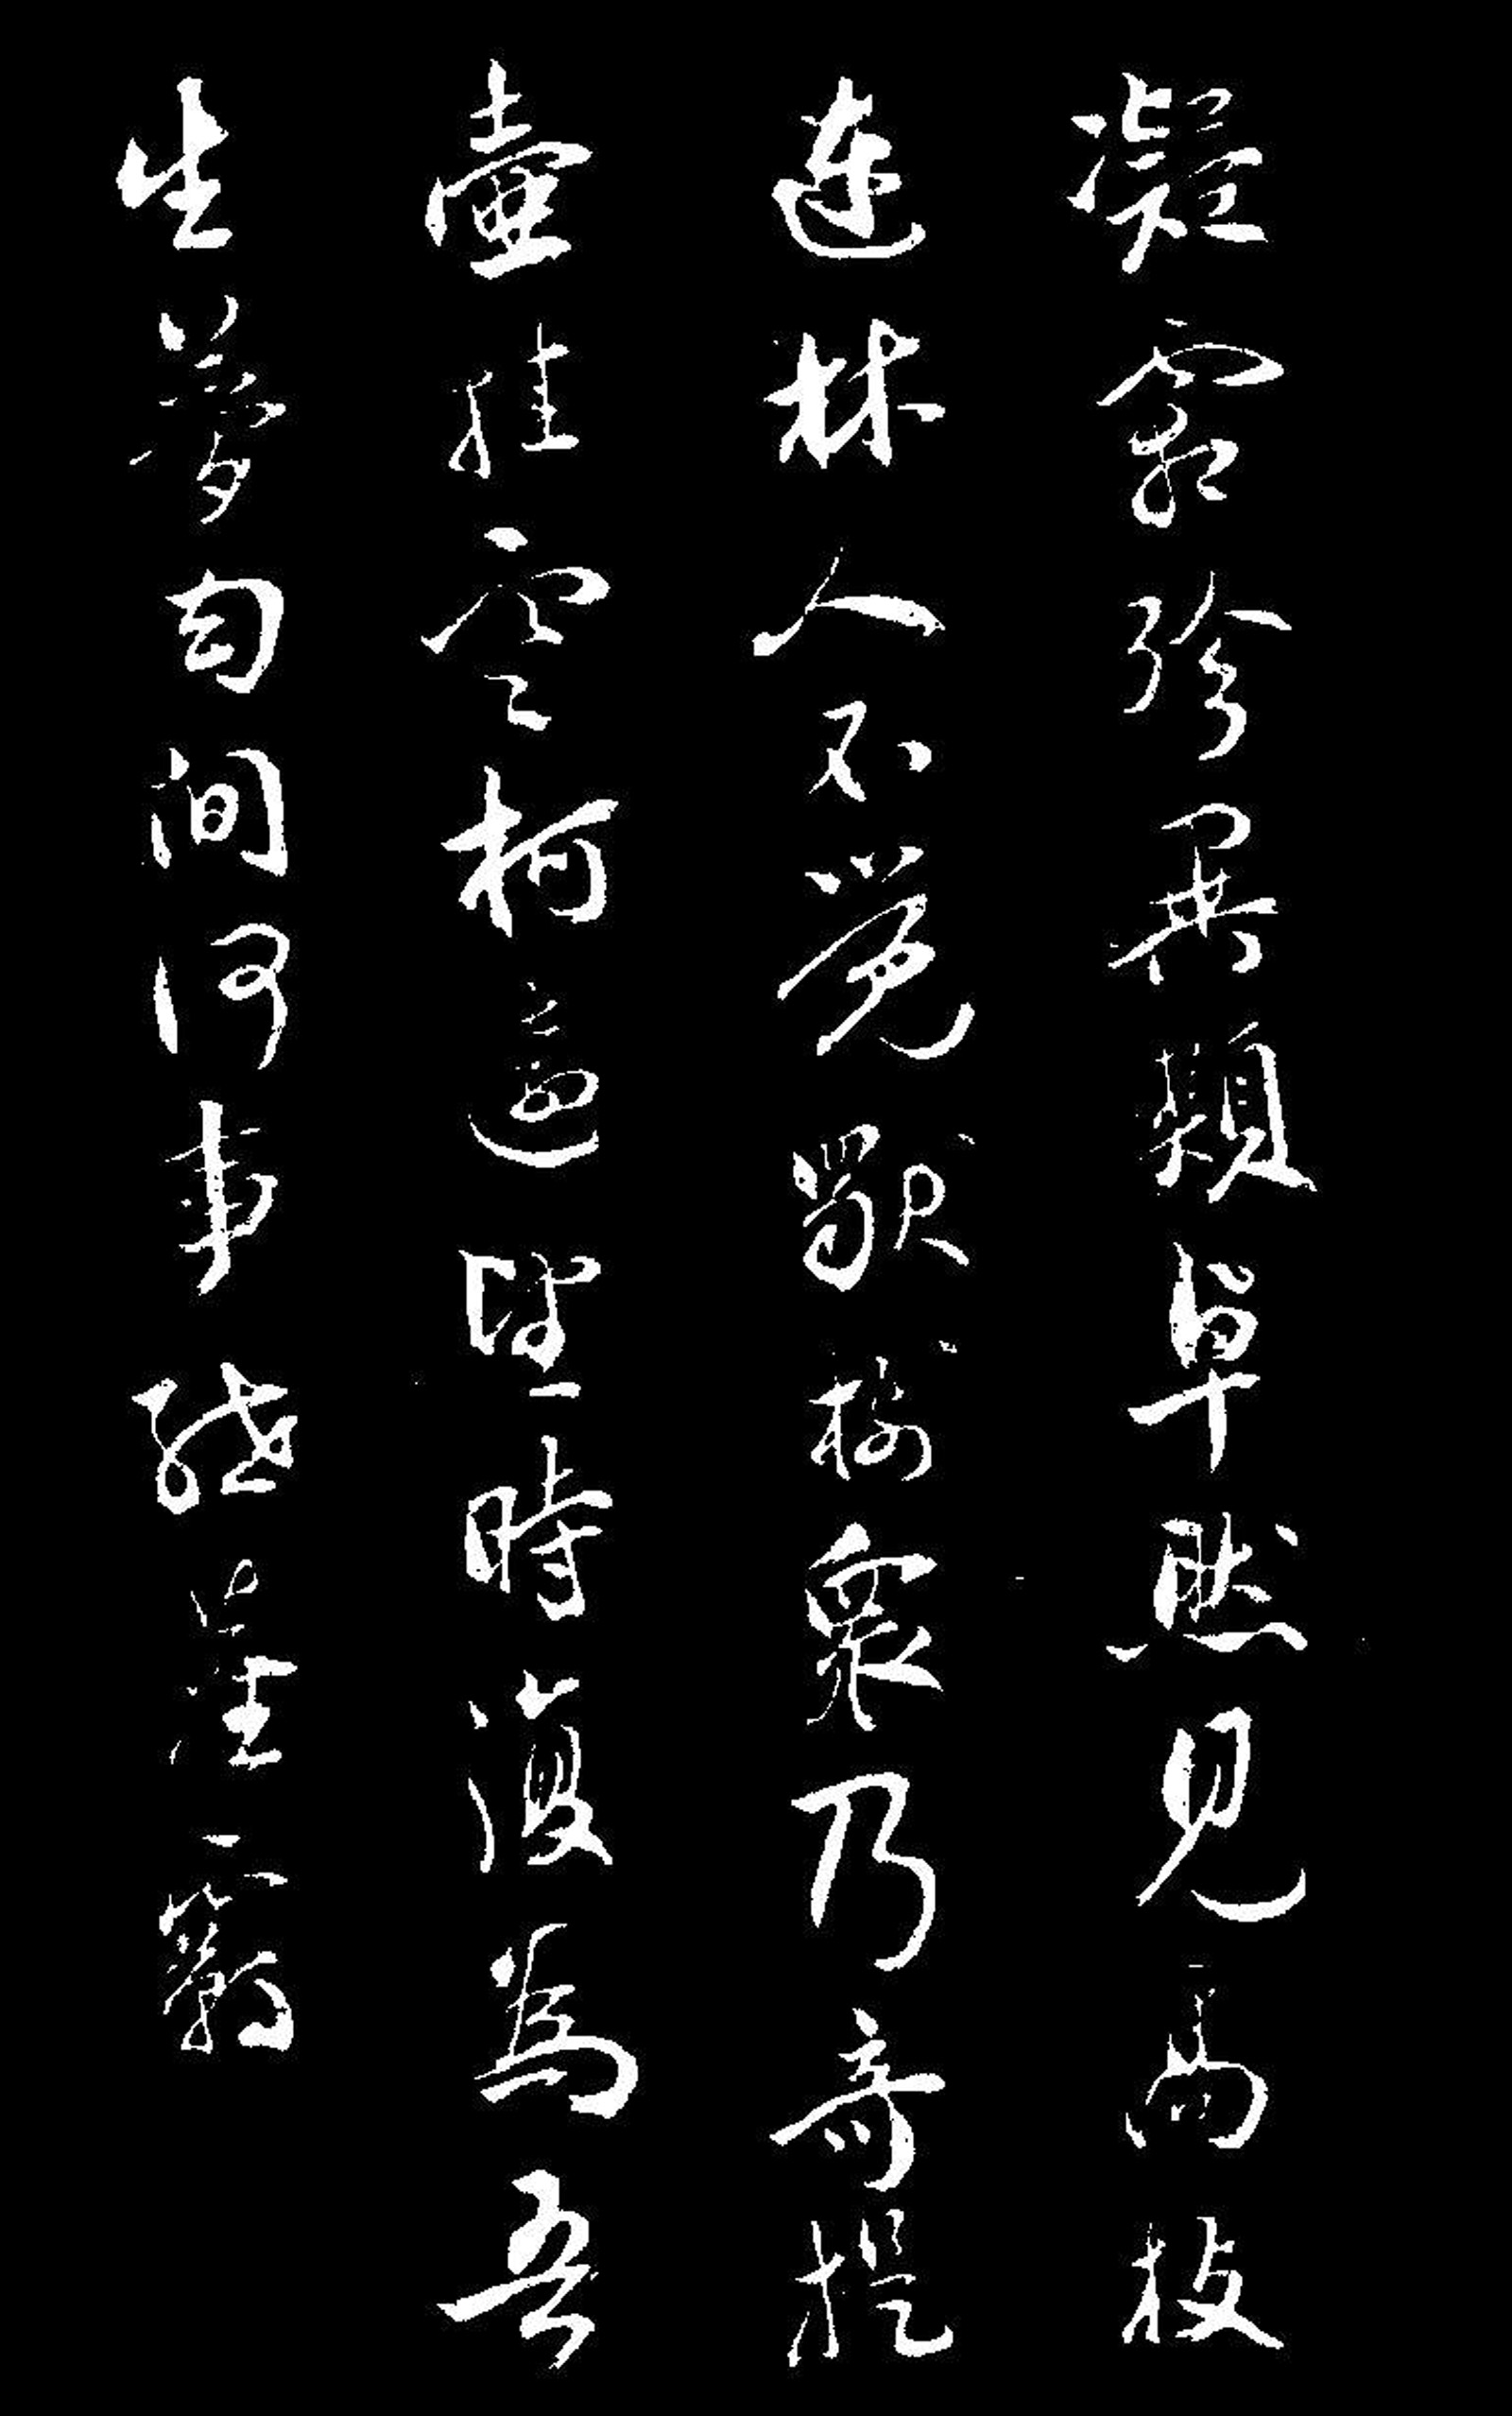 凝霜殄異類卓然見高枝
連林人不覺獸樹衆乃奇提
壺挂空柯遠望時復爲吾
生夢自間何事紲塵羈